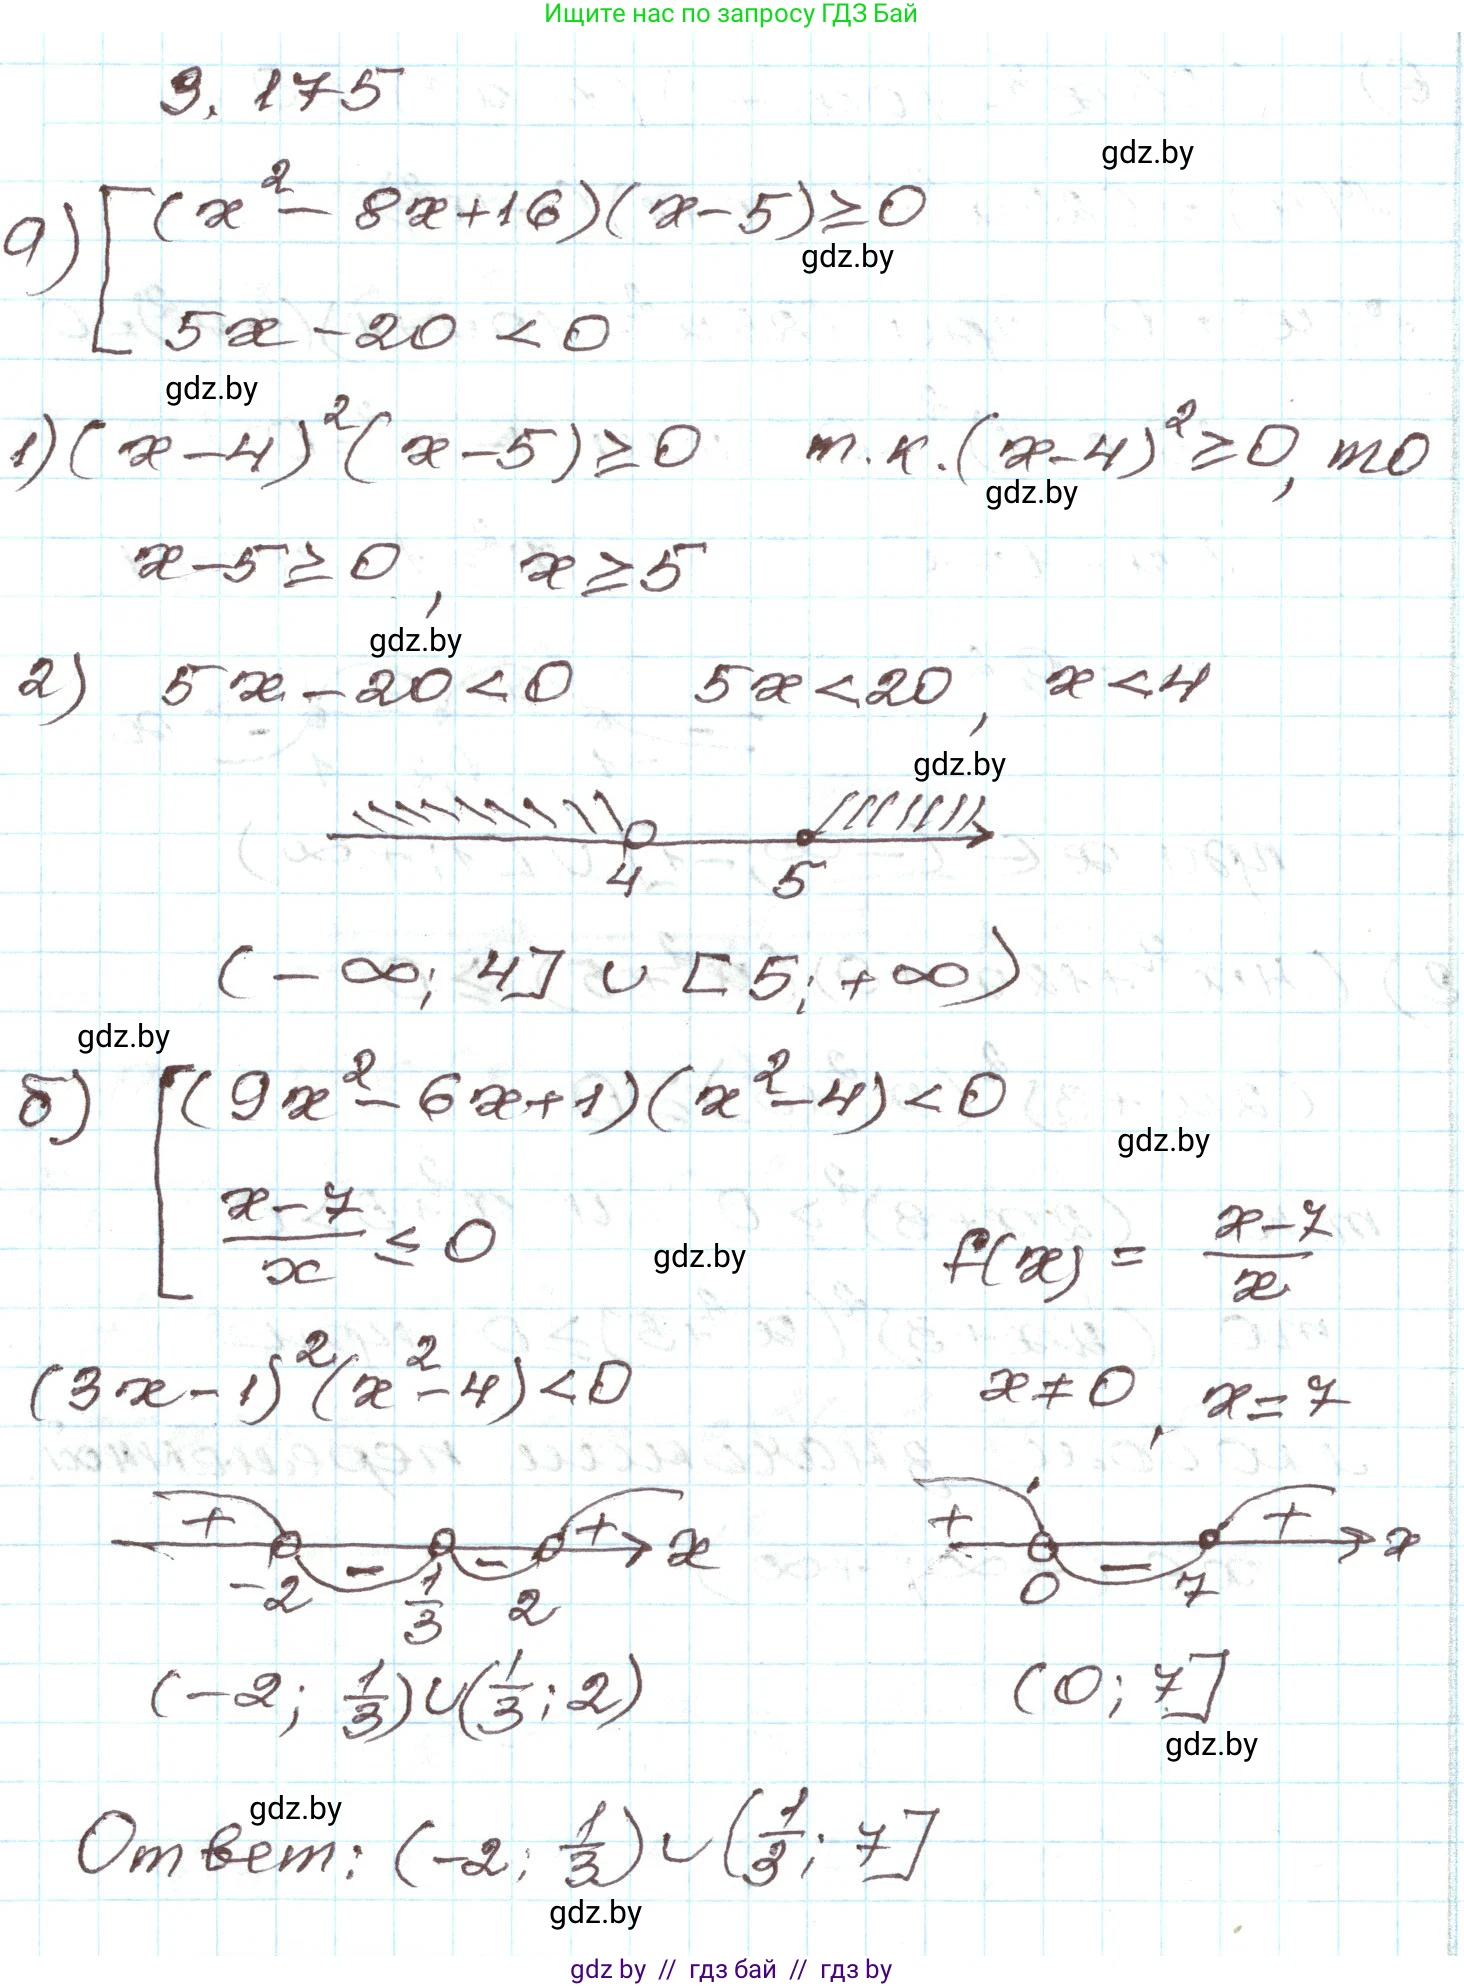 Ищите нас по запросу ГДЗ Бай
9.175
gdz.by
а) [ (x² - 8x + 16)(x - 5) ≥ 0
gdz.by
5x - 20 < 0
gdz.by
1) (x - 4)² (x - 5) ≥ 0 т.к. (x - 4)² ≥ 0, то
gdz.by
x - 5 ≥ 0, x ≥ 5
gdz.by
2) 5x - 20 < 0 5x < 20, x < 4
gdz.by
4 5
(-∞; 4] ∪ [5; +∞)
gdz.by
б) [ (9x² - 6x + 1)(x² - 4) < 0
gdz.by
(x - 7)/x ≤ 0 f(x) = (x - 7)/x
gdz.by
(3x - 1)² (x² - 4) < 0 x ≠ 0, x = 7
+ - - + x + - + x
-2 1/3 2 0 7
(-2; 1/3) ∪ (1/3; 2) (0; 7]
gdz.by
gdz.by
Ответ: (-2; 1/3) ∪ (1/3; 7]
gdz.by
gdz by // гдз бай // гдз by